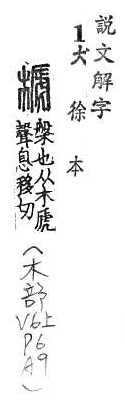 説文解字
1大徐本
榹
槃也从木虒
聲息移切
(木部
V6上
P6
A9)